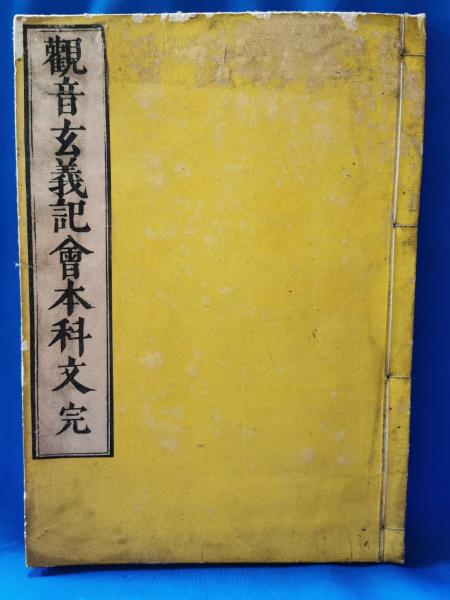 觀音玄義記會本科文 完